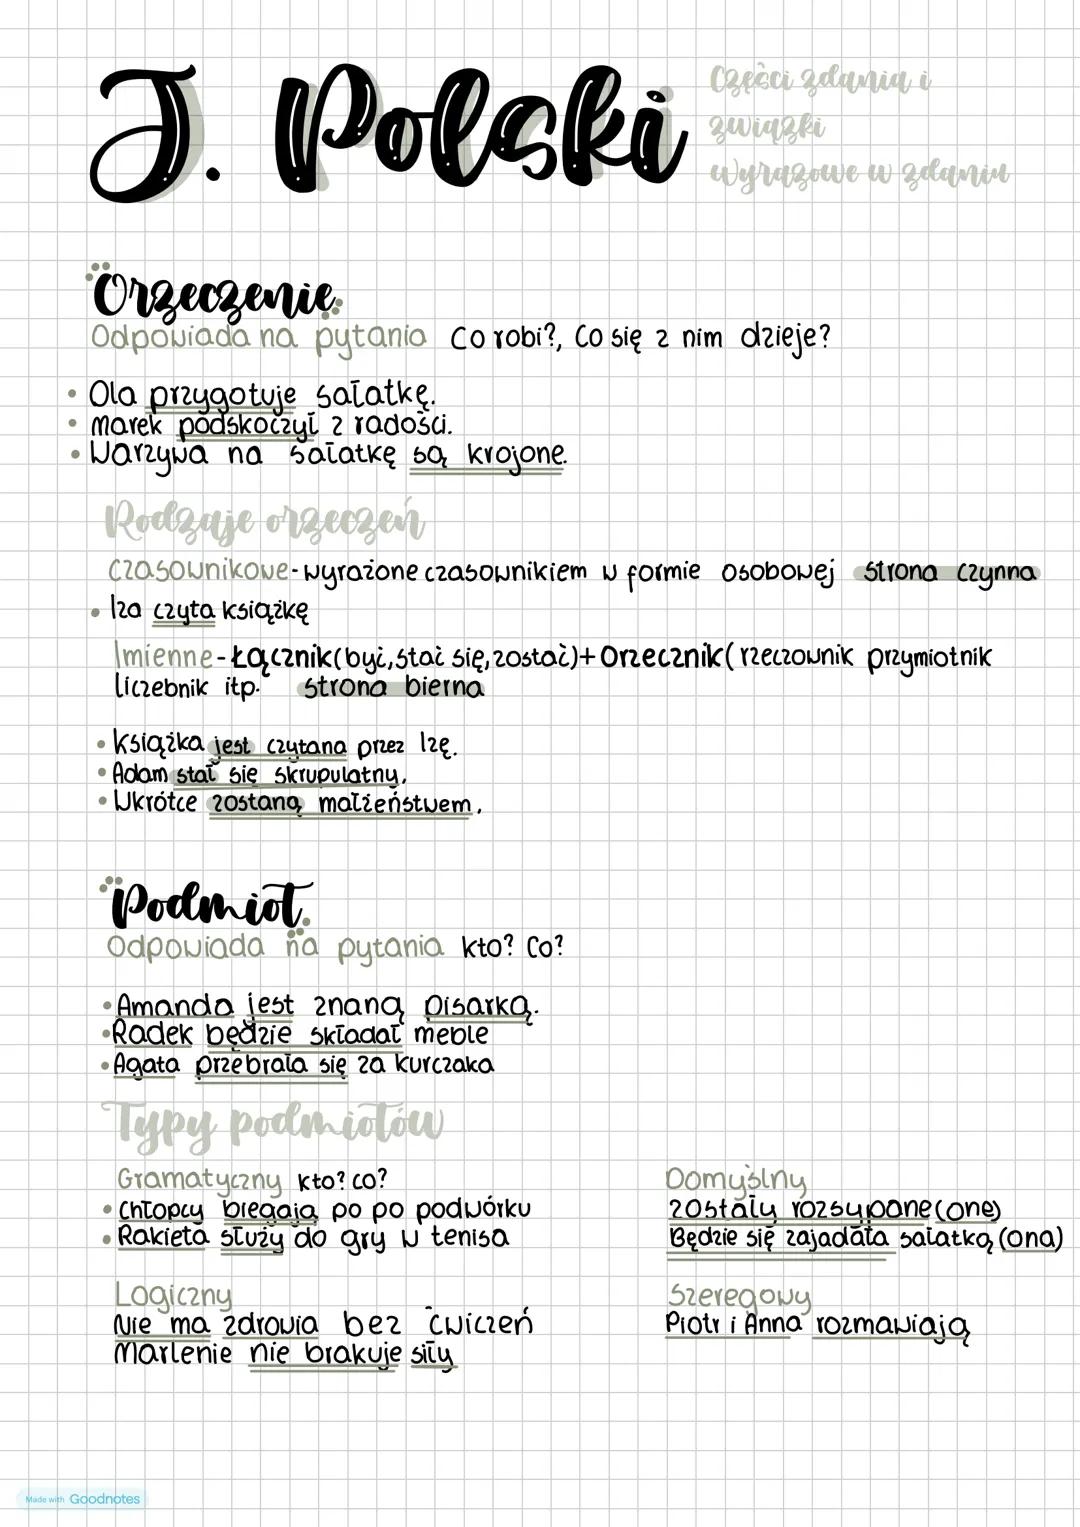 J. Polski
Części zdania i
związki
wyrazowe w zdaniu
Orzeczenie
Odpowiada na pytania Co robi?, Co się z nim dzieje?
• Ola przygotuje sałatkę.
• Marek podskoczył z radości.
• Warzywa na sałatkę są krojone.
Rodzaje orzeczeń
Czasownikowe - wyrażone czasownikiem w formie osobowej strona czynna
• Iza czyta książkę
Imienne - Łącznik (być, stać się, zostać) + Orzecznik (rzeczownik przymiotnik
liczebnik itp. strona bierna
• Książka jest czytana przez Izę.
• Adam stał się skrupulatny.
• Wkrótce zostaną małżeństwem.
Podmiot
Odpowiada na pytania kto? Co?
• Amanda jest znaną pisarką.
• Radek będzie składał meble
• Agata przebrała się za kurczaka
Typy podmiotów
Gramatyczny kto? co?
• Chłopcy biegają po po podwórku
• Rakieta służy do gry w tenisa
Domyślny
zostały rozsypane (one)
Będzie się zajadała sałatką (ona)
Logiczny
Nie ma zdrowia bez ćwiczeń
Marlenie nie brakuje siły
Szeregowy
Piotr i Anna rozmawiają
Made with Goodnotes